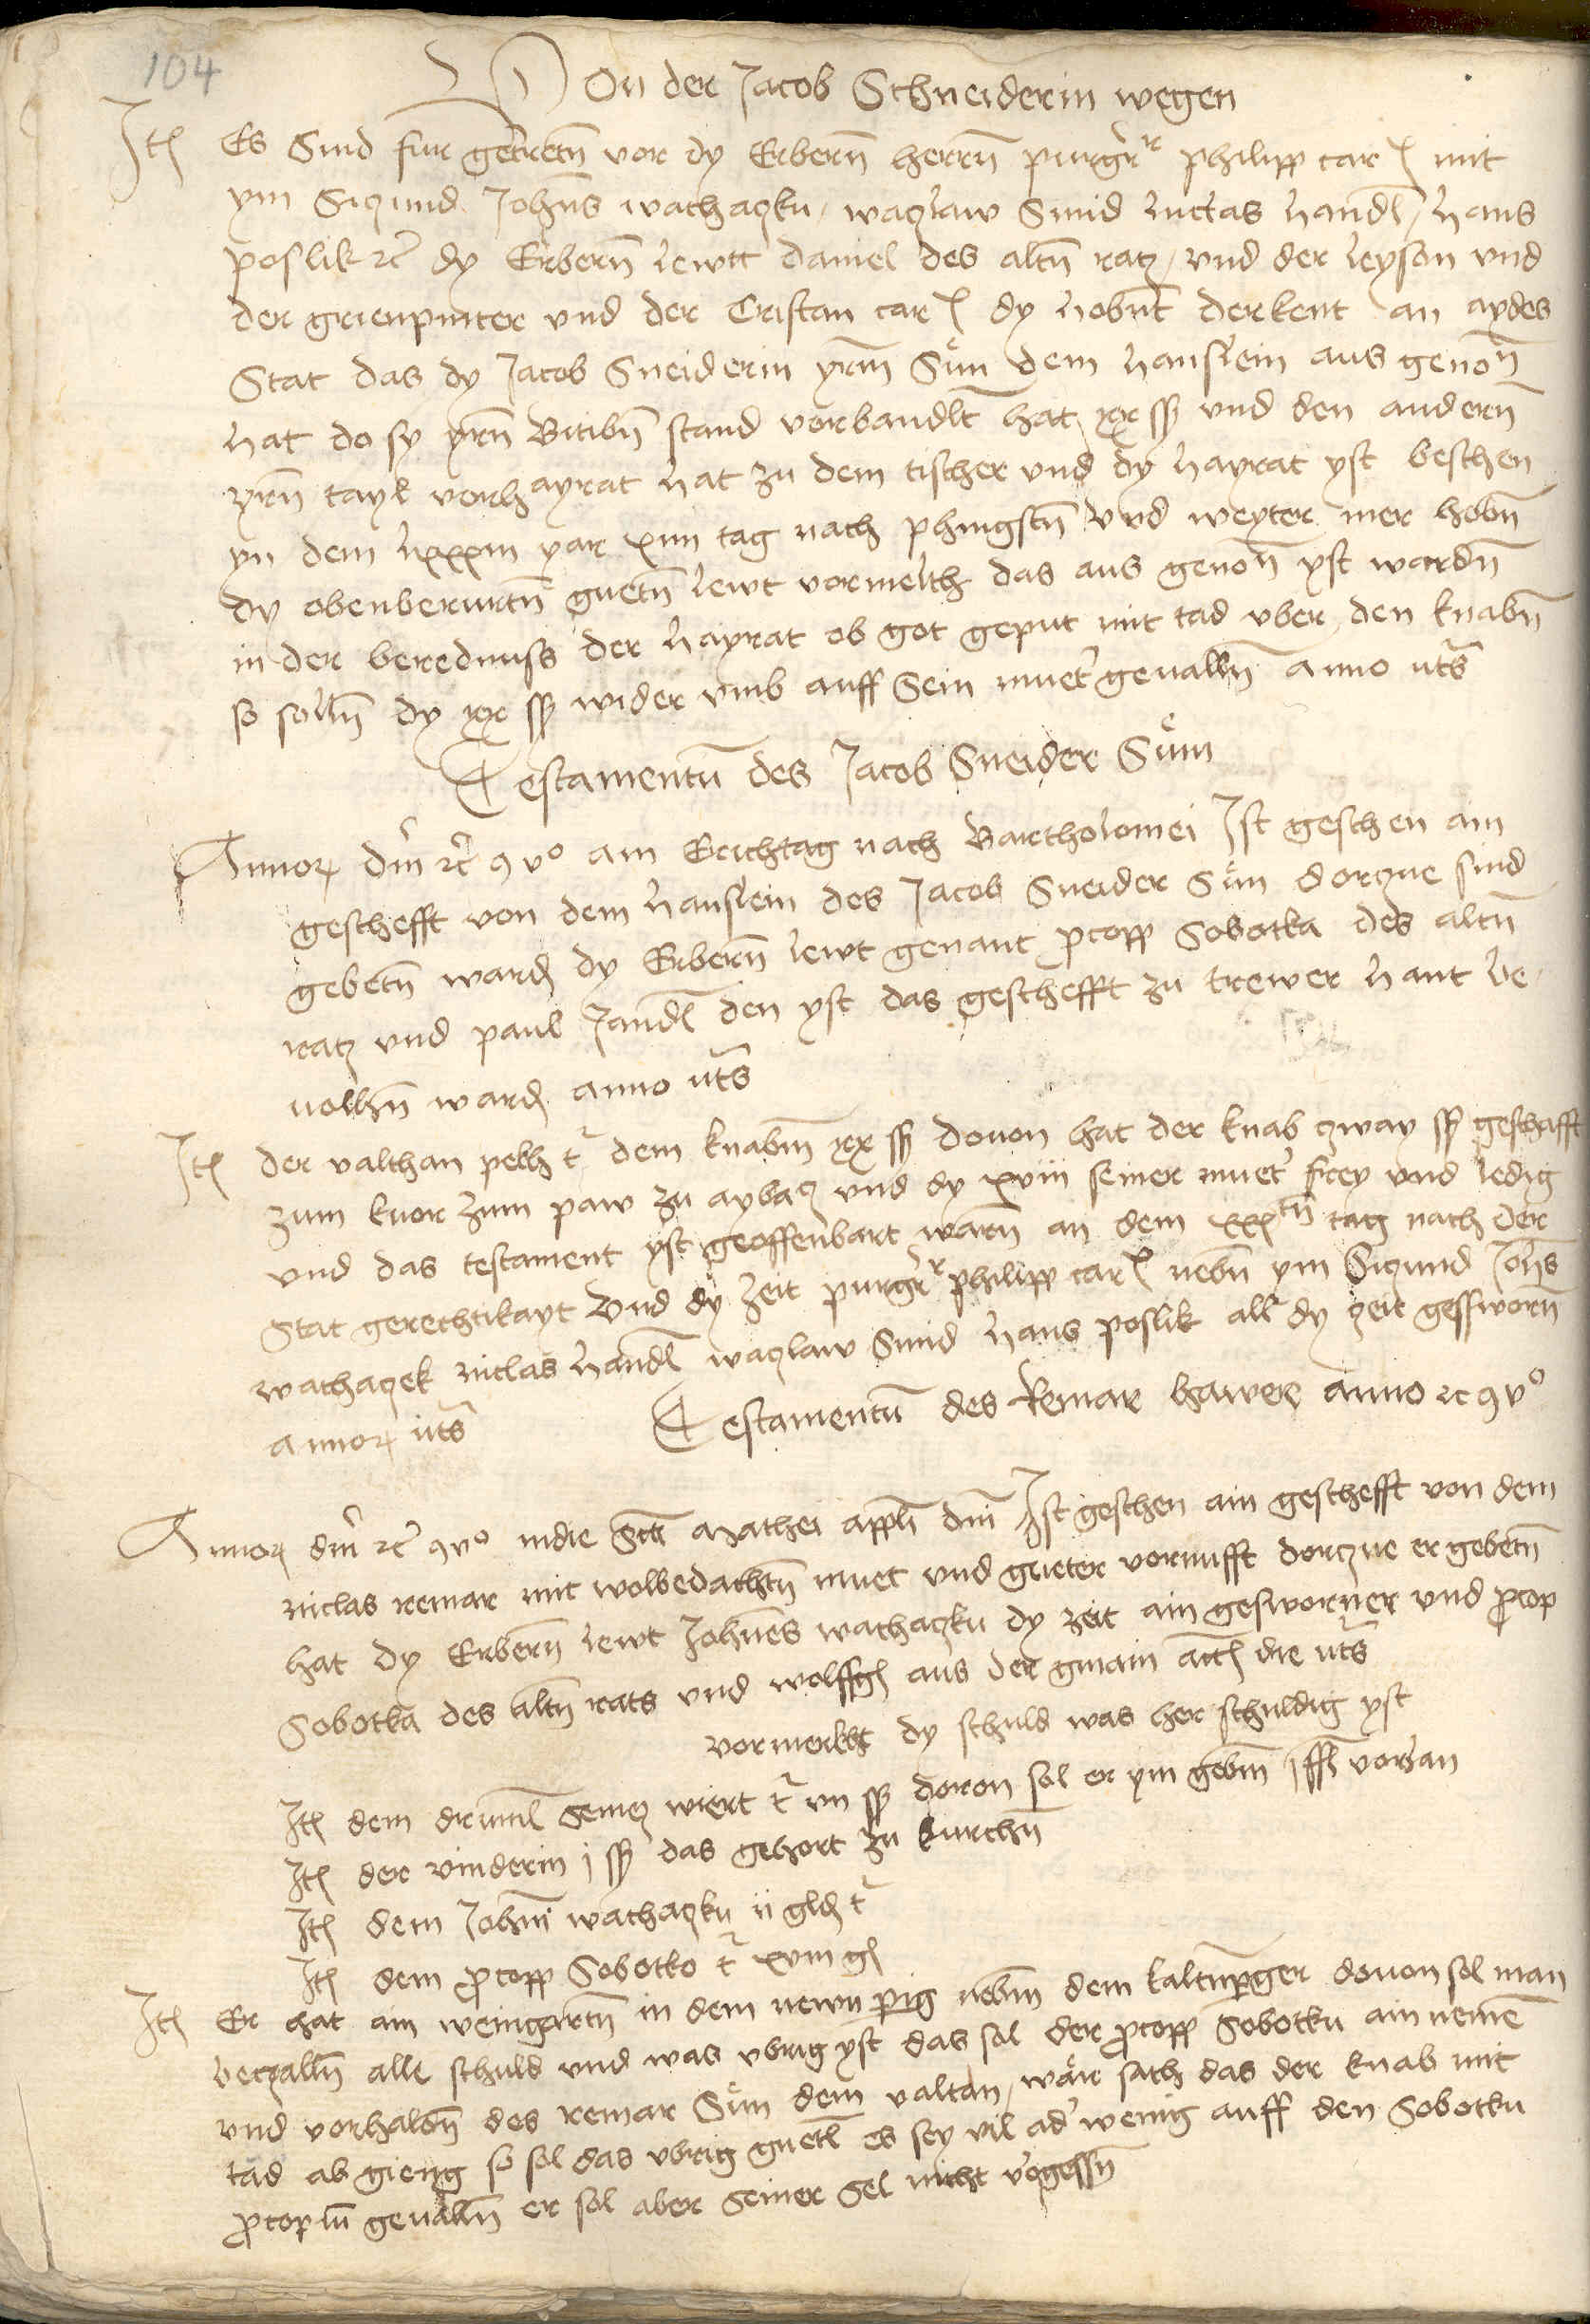 104
Von der Jacob Schneiderin wegen
Itē Es Sind fur getretn̄ vor dy Erbern̄ herrn̄ purgrr philipp car mit
ym Sigmund Johāns wathaczku / waczlaw Smid luctas handl / hans
poslik ꝛc dy Erbern̄ lewtt daniel des altn̄ racz / vnd der leyson vnd
der grienpinter vnd der Cristan car dy hobnt derkent an aydes
Stat das dy Jacob Sneiderin yrm Sůn dem hanslein aus genon̄
hat do sy yrn̄ Bitibn̄ stand vorbandlt hat xx ß vnd den andern̄
yrn̄ tayl vorhayrat hat zu dem tischer vnd dy hayrat yst beschen
yn dem lxxxm yar xiiii tag nach phingstn̄ Vnd weyter mer hobn̄
dy obenberurtn̄ guetn̄ lewt vormelth das aus genon̄ yst wordn̄
in der berednuss der hayrat ob got geput mit tad vber den knabn̄
so solln̄ dy xx ß wider vmb auff Sein muet' geualln̄ Anno uts
Testamentū des Jacob Sneider Sůn
Annoꝝ dm̄ ꝛc 9 vº am Erichtag nach Bartholomei Ist geschen ain
geschefft von dem hanslein des Jacob Sneider Sůn dorczue sind
gebetn̄ ward dy Erbern̄ lewt genant procopp Sobotka des altn̄
racz vnd paul Jandl den yst das geschefft zu trewer hant be-
uolhn̄ ward anno uts
Itē der valthan pelh t dem knabm xx ß douon hat der knab czway ß geschafft
zum knor zum paw zu aybacz vnd dy xviii seiner muet' frey vnd ledig
vnd das testament yst geoffenbart warn̄ an dem xxxtn̄ tag nach der
Stat gerechtikayt Vnd dy zeit purgrr philipp car nebn̄ ym Sigmund Johns
wathaczek niclas handl waczlaw Smid hans poslik all dy zeit gesswornn̄
annoꝝ uts
Testamentū des Remar hawer anno ꝛc 9 vº
Annoꝝ dm̄ ꝛc 9vº indie Scti Mathei appli dm̄ Ist geschen ain geschefft von dem
niclas remar mit wolbedachtn̄ muet vnd gueter vornufft dorczue er gebetn̄
hat dy Erbern̄ lewt Johnēs wathaczku dy zeit ain gesworner vnd procop
Sobotka des altn̄ rats vnd wolffg aus der gmain actū die uts
vormerkht dy schuld was her schuldig yst
Itē dem drimil Semcz wiert t vii ß doron sol er ym gebm j ffl vorhan
Itē der vinderin j ß das gehort zu kurchn̄
Itē dem Johni wathaczku ii gld t
Itē dem procopp Sobotko t xviii gl
Itē Er hat ain weingartn̄ in dem newnperig nebm dem kaltnperger douon sol man
beczalln̄ alle schuld vnd was vbrig yst das sol der procopp Sobotku ain nemē
vnd vorhaldn̄ des remar Sůn dem valtan / wår sach das der knab mit
tad ab gieng so sol das vbrig guetl es sey vil ad' wenig auff den Sobotku
procopiū geualln̄ er sol aber Seiner Sel nicht v'gessn̄